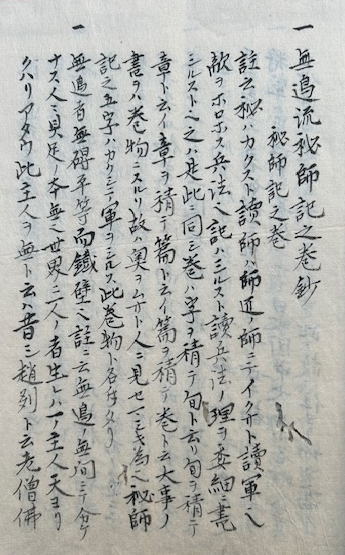 一無邊流秘師記之巻鈔
秘師記之巻
註云秘ハカクスト讀師ハ師匠師ニテイクサト讀軍也
敵ヲホロホス兵法也記ハシルスト讀兵法ノ理ヲ委細書
シルスト也之ハ是此ニ同シ巻ハ字ヲ積テ句ト云リ句ヲ積テ
章ト云イ章ヲ積テ篇ト云イ篇ヲ積テ巻ト云大事ノ
書ヲハ巻物ニスルリ故ハ奥ヲムサト人ニ見セマシキ為也秘師
記之五字ハカクシテ軍ヲシルス此巻物ト名付タリ
一無邊者無碍平等而鐵壁也註ニ云無邊ハ無间ニテ分テ
ナス人々具足ノ本無也世界ニ二人ノ者生ハ一ノ主人天ヨリ
クハリアタウ此主人ヲ無ト云昔シ趙列ト云老僧佛